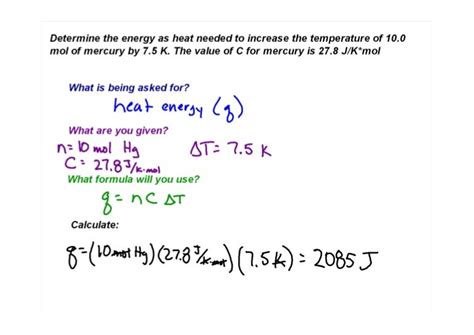 Determine the energy as heat needed to increase the temperature of 10.0
mol of mercury by 7.5 K. The value of C for mercury is 27.8 J/K*mol
What is being asked for?
heat energy (q)
What are you given?
n= 10 mol Hg ΔT= 7.5 K
C= 27.8 J/K·mol
What formula will you use?
q = n C ΔT
Calculate:
q=(10 mol Hg)(27.8 J/K·mol)(7.5K) = 2085 J